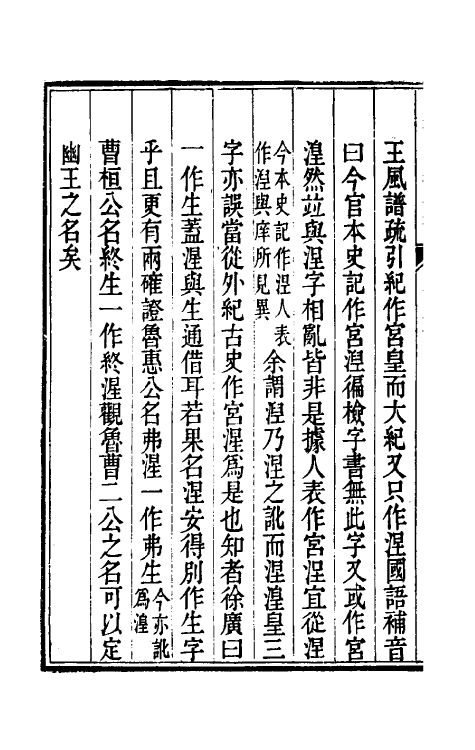 王風譜疏引紀作宮皇而大紀又只作涅國語補音
曰今官本史記作宮湼徧檢字書無此字又或作宮
湟然並與涅字相亂皆非是據人表作宮涅宜從涅
今本史記作湼人表
作湼與庠所見異
余謂湼乃涅之訛而涅湟皇三
字亦誤當從外紀古史作宮湦為是也知者徐廣曰
一作生蓋湦與生通借耳若果名涅安得別作生字
乎且更有兩確證魯惠公名弗湦一作弗生
今亦訛
為湟
曹桓公名終生一作終湦觀魯曹二公之名可以定
幽王之名矣